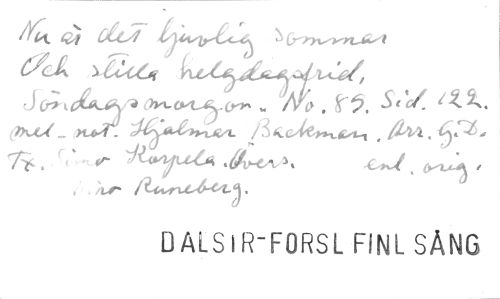 Nu är det ljuvlig sommar
Och stilla helgdagsfrid,
Söndagsmorgon. No. 89. Sid. 122.
mel-not. Hjalmar Backman. Arr. G.D.
Tx. Simo Korpela. Övers. enl. orig.
Nino Runeberg.
DALSIR-FORSL FINL SÅNG